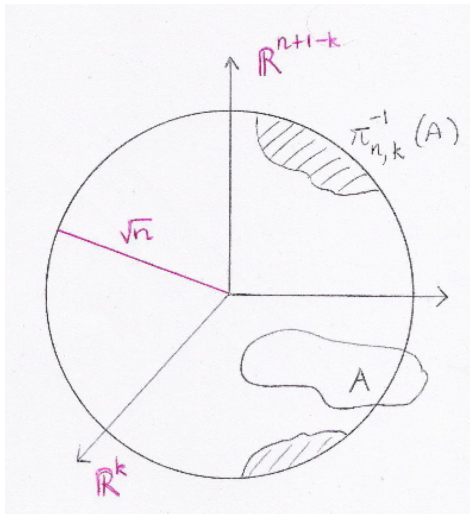 ℝⁿ⁺¹⁻ᵏ
π⁻¹ₙ,ₖ (A)
√n
A
ℝᵏ